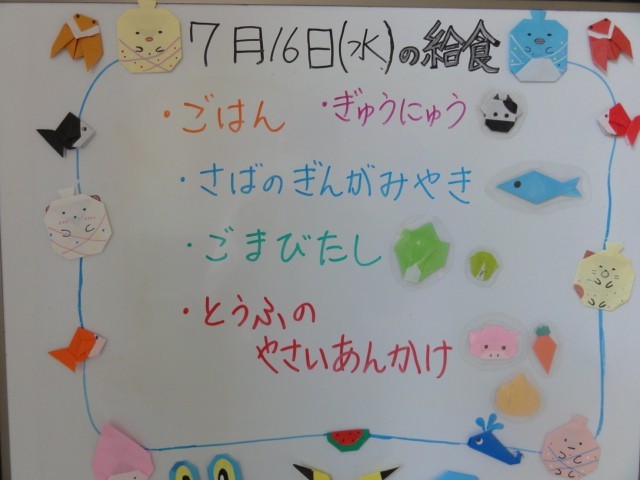 7月16日(水)の給食
・ごはん ・ぎゅうにゅう
・さばのぎんがみやき
・ごまびたし
・とうふの
やさいあんかけ